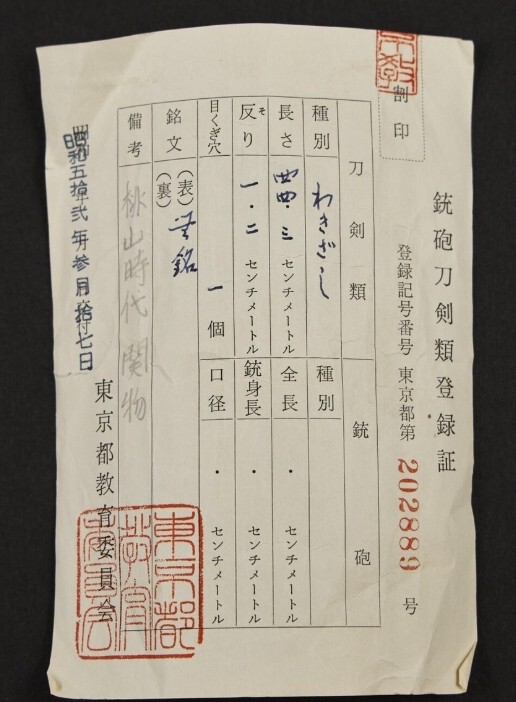 割印
銃砲刀剣類登録証
登録記号番号 東京都第 202889 号
刀剣類 銃砲
種別 わきざし 種別
長さ 四四・三 センチメートル 全長 ・ センチメートル
反り そ 一・二 センチメートル 銃身長 ・ センチメートル
目くぎ穴 一 個 口径 ・ センチメートル
銘文 (表) 無銘
(裏)
備考 桃山時代 関物
昭和五拾弐年参月拾七日
交付
東京都教育委員会
東京都教育委員会